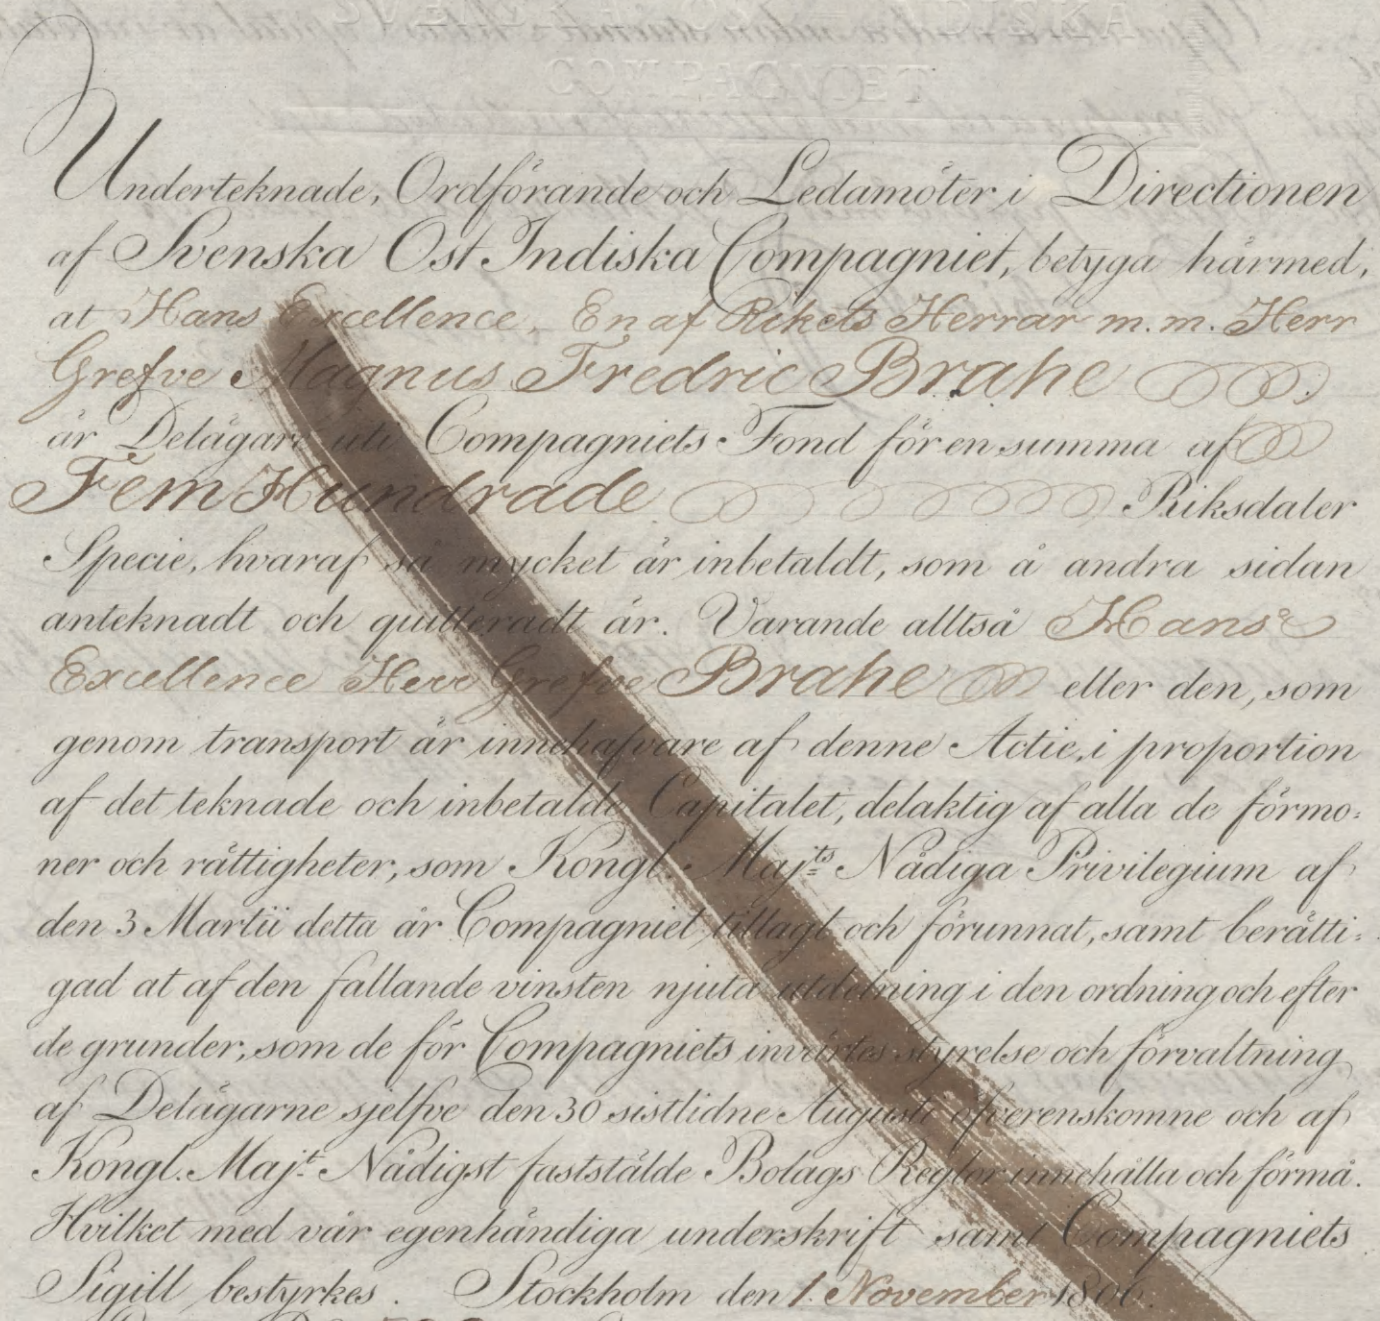 COMPAGNIET
Underteknade, Ordförande och Ledamöter i Directionen
af Svenska Ost Indiska Compagniet, betyga härmed,
at Hans Excellence, En af Rikets Herrar m.m. Herr
Grefve Magnus Fredric Brahe
är Delägare uti Compagniets Fond för en summa af
Fem Hundrade Riksdaler
Specie, hvaraf så mycket är inbetaldt, som å andra sidan
anteknadt och quitteradt är. Varande alltså Hans
Excellence Herr Grefve Brahe eller den, som
genom transport är innehafvare af denne Actie, i proportion
af det teknade och inbetalde Capitalet, delaktig af alla de förmo:
ner och rättigheter, som Kongl. Maj:ts Nådiga Privilegium af
den 3 Martii detta år Compagniet tillagt och förunnat, samt berätti:
gad at af den fallande vinsten njuta utdelning i den ordning och efter
de grunder, som de för Compagniets invärtes styrelse och förvaltning
af Delägarne sjelfve den 30 sistlidne Augusti öfverenskomne och af
Kongl. Maj:t Nådigst fastställde Bolags Reglor innehålla och förmå.
Hvilket med vår egenhändiga underskrift samt Compagniets
Sigill bestyrkes. Stockholm den 1 November 1806.